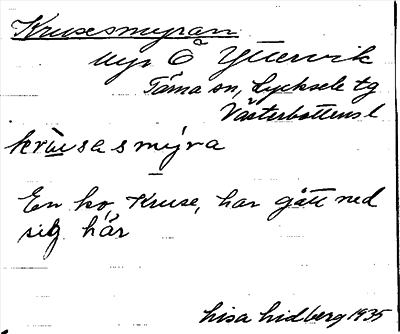 Krusesmyran
Myr Ö Yttervik
Tärna sn, Lycksele tg
Västerbottens l
krùsasmýra
En ko, Kruse, har gått ned
sig här
Lisa Lidberg 1935